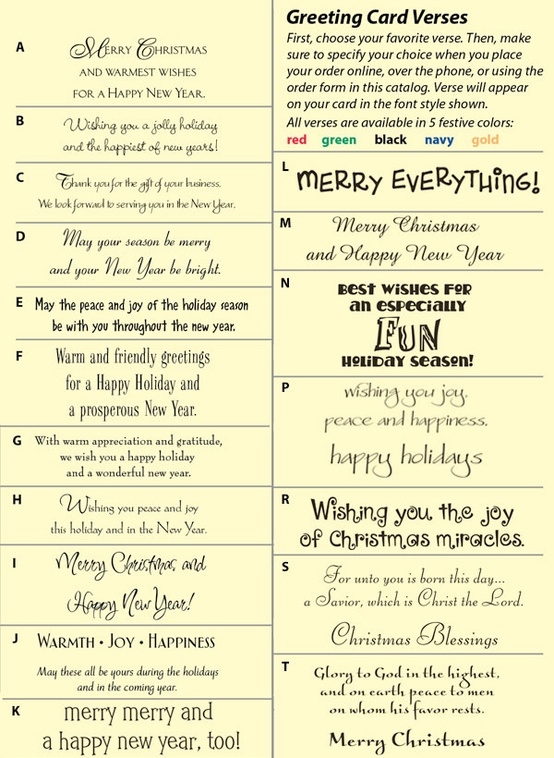 A
Merry Christmas
and warmest wishes
for a Happy New Year.
B
Wishing you a jolly holiday
and the happiest of new years!
C
Thank you for the gift of your business.
We look forward to serving you in the New Year.
D
May your season be merry
and your New Year be bright.
E
May the peace and joy of the holiday season
be with you throughout the new year.
F
Warm and friendly greetings
for a Happy Holiday and
a prosperous New Year.
G
With warm appreciation and gratitude,
we wish you a happy holiday
and a wonderful new year.
H
Wishing you peace and joy
this holiday and in the New Year.
I
Merry Christmas, and
Happy New Year!
J
Warmth • Joy • Happiness
May these all be yours during the holidays
and in the coming year.
K
merry merry and
a happy new year, too!
Greeting Card Verses
First, choose your favorite verse. Then, make
sure to specify your choice when you place
your order online, over the phone, or using the
order form in this catalog. Verse will appear
on your card in the font style shown.
All verses are available in 5 festive colors:
red green black navy gold
L
MERRY EVERYTHING!
M
Merry Christmas
and Happy New Year
N
Best Wishes for
an especially
Fun
Holiday Season!
P
wishing you joy,
peace and happiness,
happy holidays
R
Wishing you the joy
of Christmas miracles.
S
For unto you is born this day...
a Savior, which is Christ the Lord.
Christmas Blessings
T
Glory to God in the highest,
and on earth peace to men
on whom his favor rests.
Merry Christmas